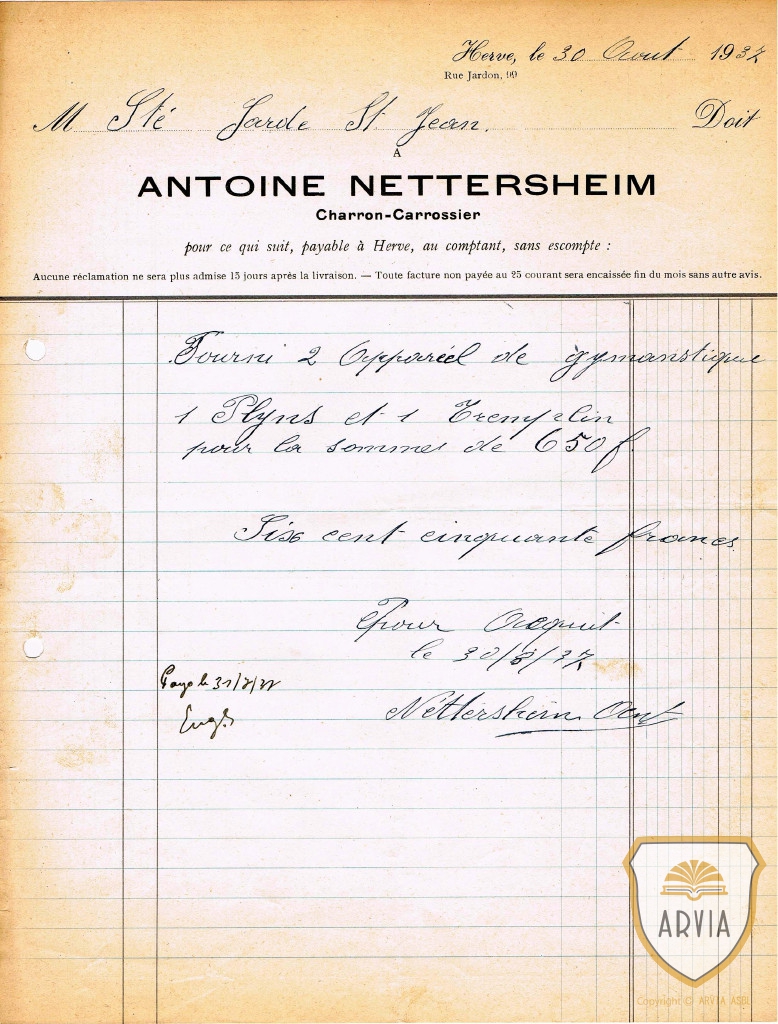 Herve, le 30 Aout 1937
Rue Jardon, 99
M Sté Jarde St Jean. Doit
A
ANTOINE NETTERSHEIM
Charron-Carrossier
pour ce qui suit, payable à Herve, au comptant, sans escompte :
Aucune réclamation ne sera plus admise 15 jours après la livraison. — Toute facture non payée au 25 courant sera encaissée fin du mois sans autre avis.
Fourni 2 Appareil de gymanstique
1 Plyns et 1 Tremplin
pour la sommes de 650 f.
Six cent cinquante francs
Pour Acquit
le 30/8/37
Nettersheim Ant
Payé le 31/8/37
ARVIA
Copyright © ARVIA ASBL